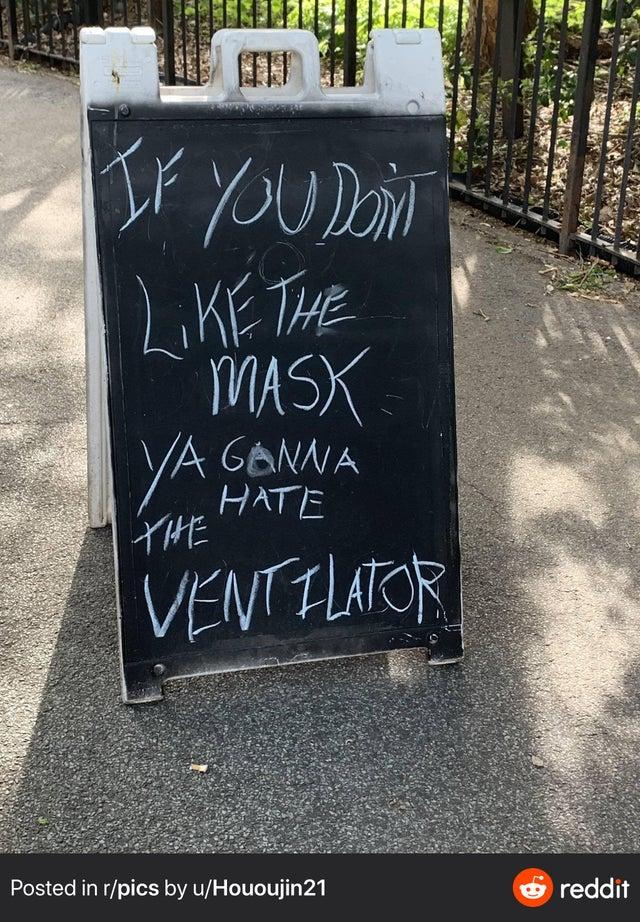 IF YOU DON'T
LIKE THE
MASK
YA GONNA
HATE
THE
VENTILATOR
Posted in r/pics by u/Hououjin21
reddit